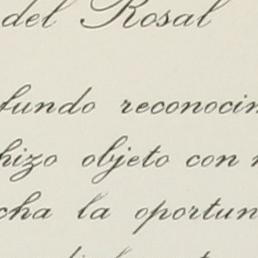 del Rosal
fundo reconocim
hizo objeto con
cha la oportun